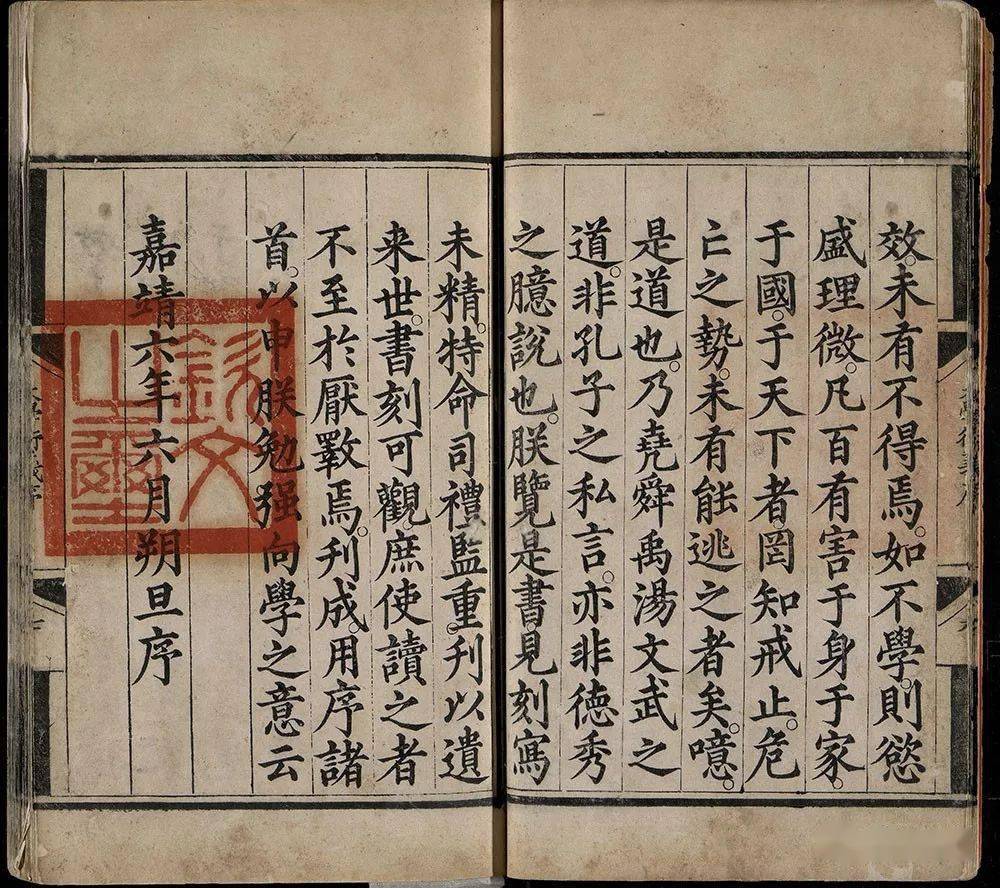 效。未有不得焉。如不學。則慾
盛理微。凡百有害于身于家。
于國。于天下者。罔知戒止。危
亡之勢。未有能逃之者矣。噫。
是道也。乃堯舜禹湯文武之
道。非孔子之私言。亦非德秀
之臆說也。朕覽是書見刻寫
未精。特命司禮監重刊以遺
来世。書刻可觀庶使讀之者
不至於厭斁焉。刋成。用序諸
首。以申朕勉强向學之意云
嘉靖六年六月朔旦序
欽文
之璽